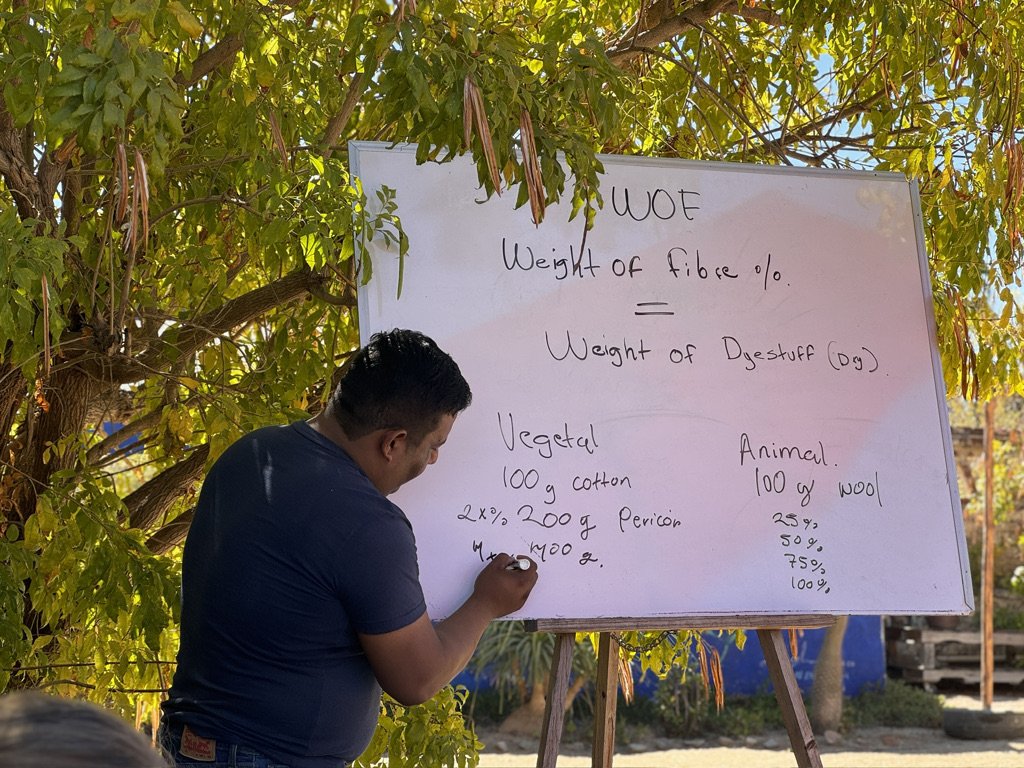 WOF
Weight of fibre %.
=
Weight of Dyestuff (Dry).
Vegetal
100 g cotton
2x% 200 g Pericón
4x 400 g.
Animal.
100 g wool
25%
50%
75%
100%